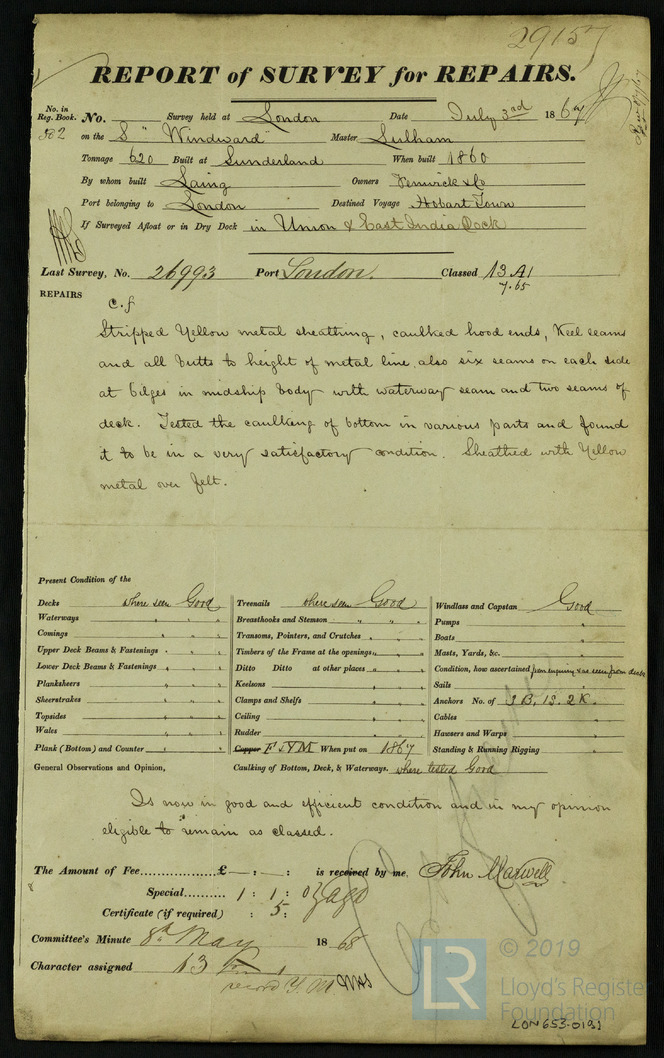 29157
REPORT of SURVEY for REPAIRS.
No. in Reg. Book. No. Survey held at London Date July 3rd 1867
382 on the S "Windward" Master Lulham
Tonnage 620 Built at Sunderland When built 1860
By whom built Laing Owners Fenwick & Co
Port belonging to London Destined Voyage Hobart Town
If Surveyed Afloat or in Dry Dock in Union & East India Dock
Last Survey, No. 26993 Port London. Classed 13 A1
7.65
REPAIRS
C. f
Stripped Yellow metal sheathing, caulked hood ends, Keel seams
and all butts to height of metal line, also six seams on each side
at bilges in midship body with waterway seam and two seams of
deck. Tested the caulking of bottom in various parts and found
it to be in a very satisfactory condition. Sheathed with Yellow
metal over felt.
Present Condition of the
Decks where seen Good
Waterways " " "
Comings " " "
Upper Deck Beams & Fastenings " " "
Lower Deck Beams & Fastenings " " "
Planksheers " " "
Sheerstrakes " " "
Topsides " " "
Wales " " "
Plank (Bottom) and Counter " " "
Treenails where seen Good
Breasthooks and Stemson " " "
Transoms, Pointers, and Crutches " " "
Timbers of the Frame at the openings " "
Ditto Ditto at other places " " "
Keelsons " " "
Clamps and Shelfs " " "
Ceiling " " "
Rudder " " "
Copper F & YM When put on 1867
Caulking of Bottom, Deck, & Waterways. where tested Good
Windlass and Capstan Good
Pumps "
Boats "
Masts, Yards, &c. "
Condition, how ascertained from enquiry & as seen from deck
Sails "
Anchors No. of 3 B, 1 S. 2 K.
Cables "
Hawsers and Warps "
Standing & Running Rigging "
General Observations and Opinion,
Is now in good and efficient condition and in my opinion
eligible to remain as classed.
The Amount of Fee £ - : - : is received by me, John Maxwell
Special 1 : 1 : 0
Certificate (if required) : 5 :
Committee's Minute 8th May 1868
Character assigned 13
record Y. M
LR
© 2019
Lloyd's Register
Foundation
LON653-0191